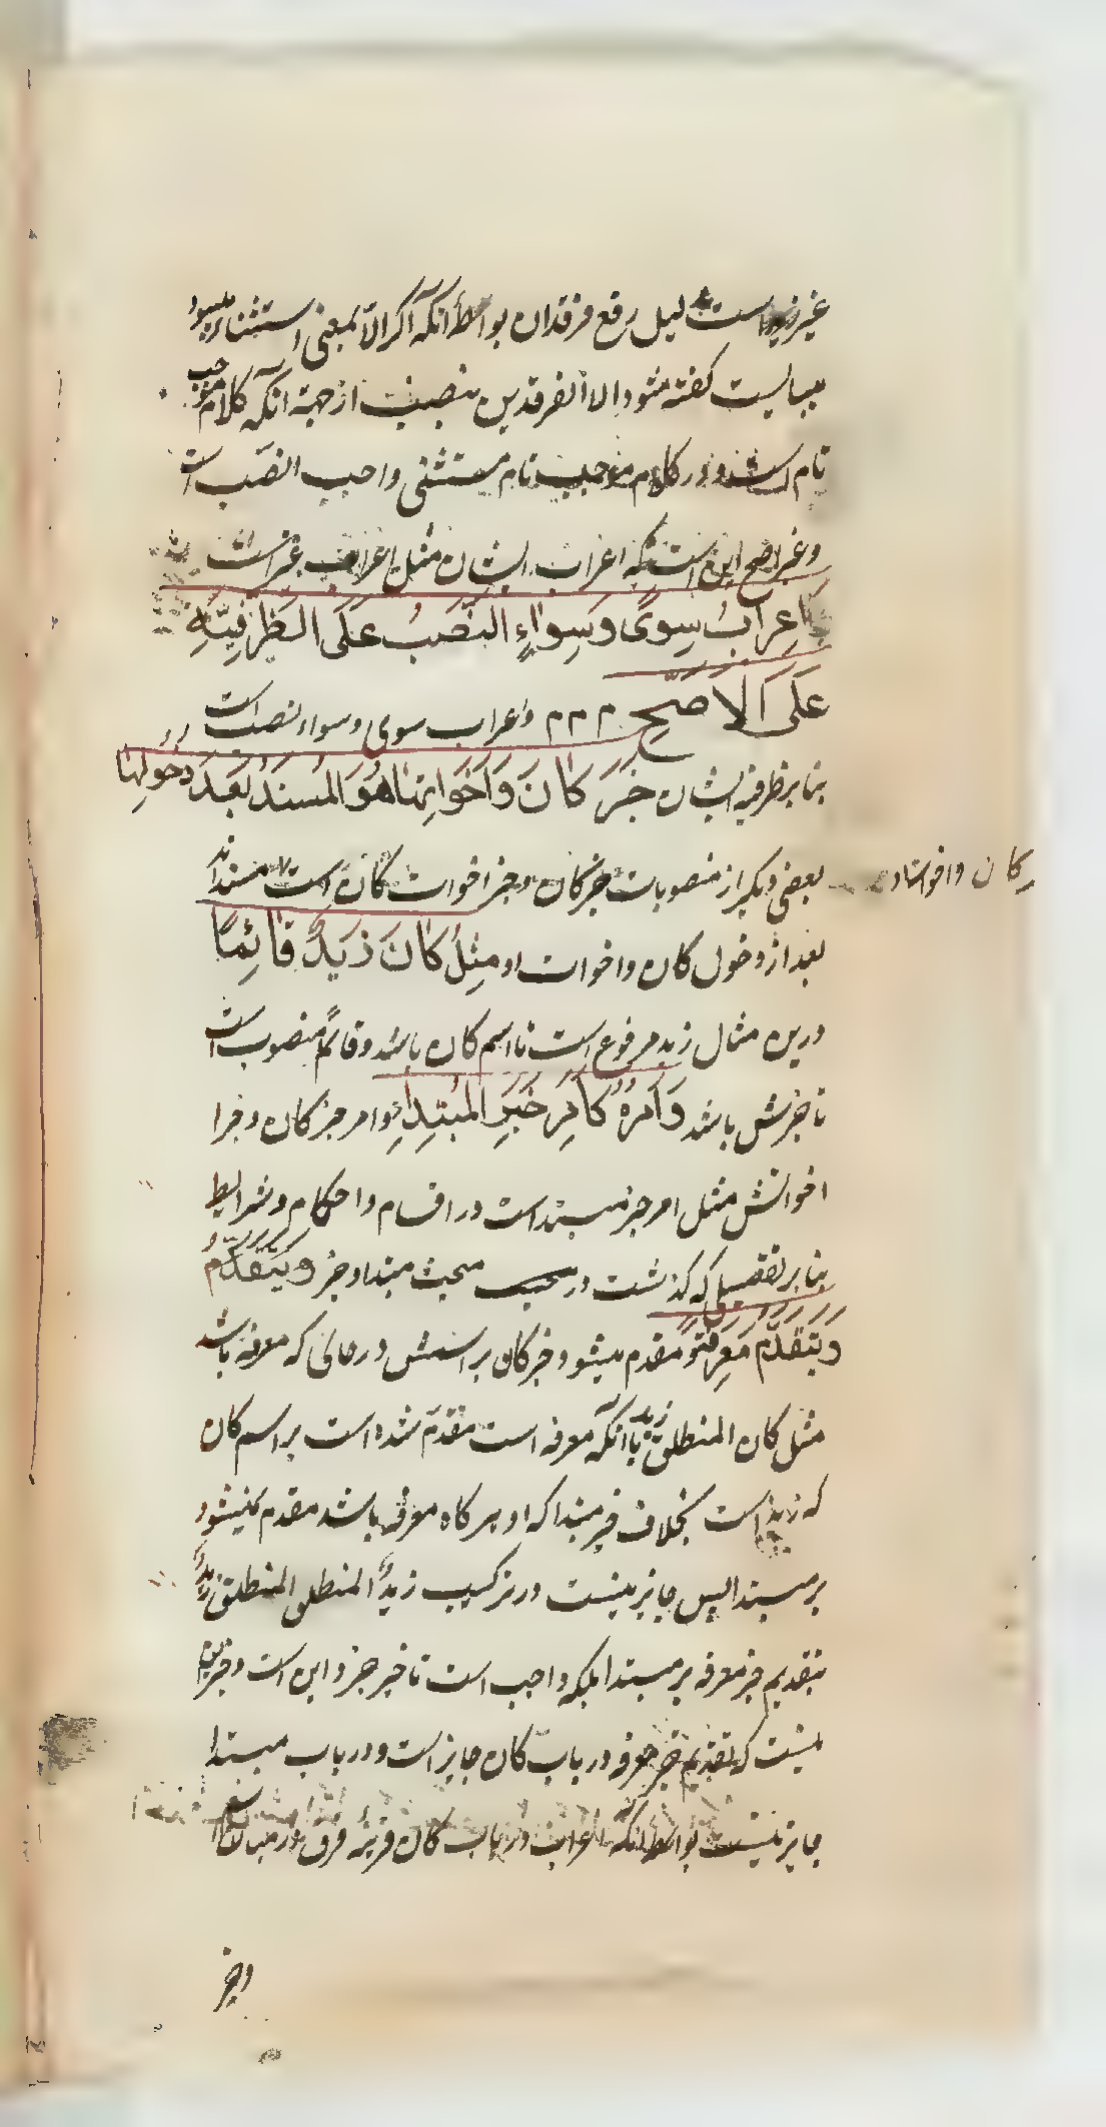 غیر است بدلیل رفع فرقدان بواسطهٔ آنکه اگر الا بمعنی استثنا میبود
میبایست گفته شود الا الفرقدین بنصب از جهة آنکه کلام موجب
تام است و در کلام موجب تام مستثنی واجب النصب است
و غیر اصح این است که اعراب ایشان مثل اعراب غیر است
وَاِعرابُ سِوىً وَسِواءٍ النَّصبُ عَلَى الظَّرفِیَّةِ
عَلَى الاَصَحِّ م م م و اعراب سوی و سواء نصب است
بنا بر ظرفیه ایشان خَبَرُ کانَ وَاَخَواتِها هُوَ المُسنَدُ بَعدَ دُخولِها
بعضی دیگر از منصوبات خبر کان و خبر اخوات کان است مسنداند
کان و اخوات او
بعد از دخول کان و اخوات او مِثلُ کانَ زَیدٌ قائِمًا
درین مثال زید مرفوع است تا اسم کان باشد و قائماً منصوب است
تا خبرش باشد وَاَمرُهُ کَاَمرِ خَبَرِ المُبتَدَاءِ و امر خبر کان و خبر
اخواتش مثل امر خبر مبتداست در اقسام و احکام و شرایط
بنا بر تفصیلی که گذشت در مبحث مبتدا و خبر وَیَتَقَدَّمُ
وَیَتَقَدَّمُ مَعرِفَةً و مقدم میشود خبر کان بر اسمش در حالی که معرفه باشد
مثل کان المنطلق زید با آنکه معرفه است مقدم شده است بر اسم کان
که زید است بخلاف خبر مبتدا که او هرگاه معرفه باشد مقدم نمیشود
بر مبتدا پس جایز نیست در ترکیب زیدٌ المنطلق المنطلق زیدٌ
بتقدیم خبر معرفه بر مبتدا بلکه واجب است تاخیر خبر و این است و جز این
نیست که تقدیم خبر معرفه در باب کان جایز است و در باب مبتدا
جایز نیست بواسطه آنکه اعراب در باب کان قرینه فرق در میان اسم
و خبر